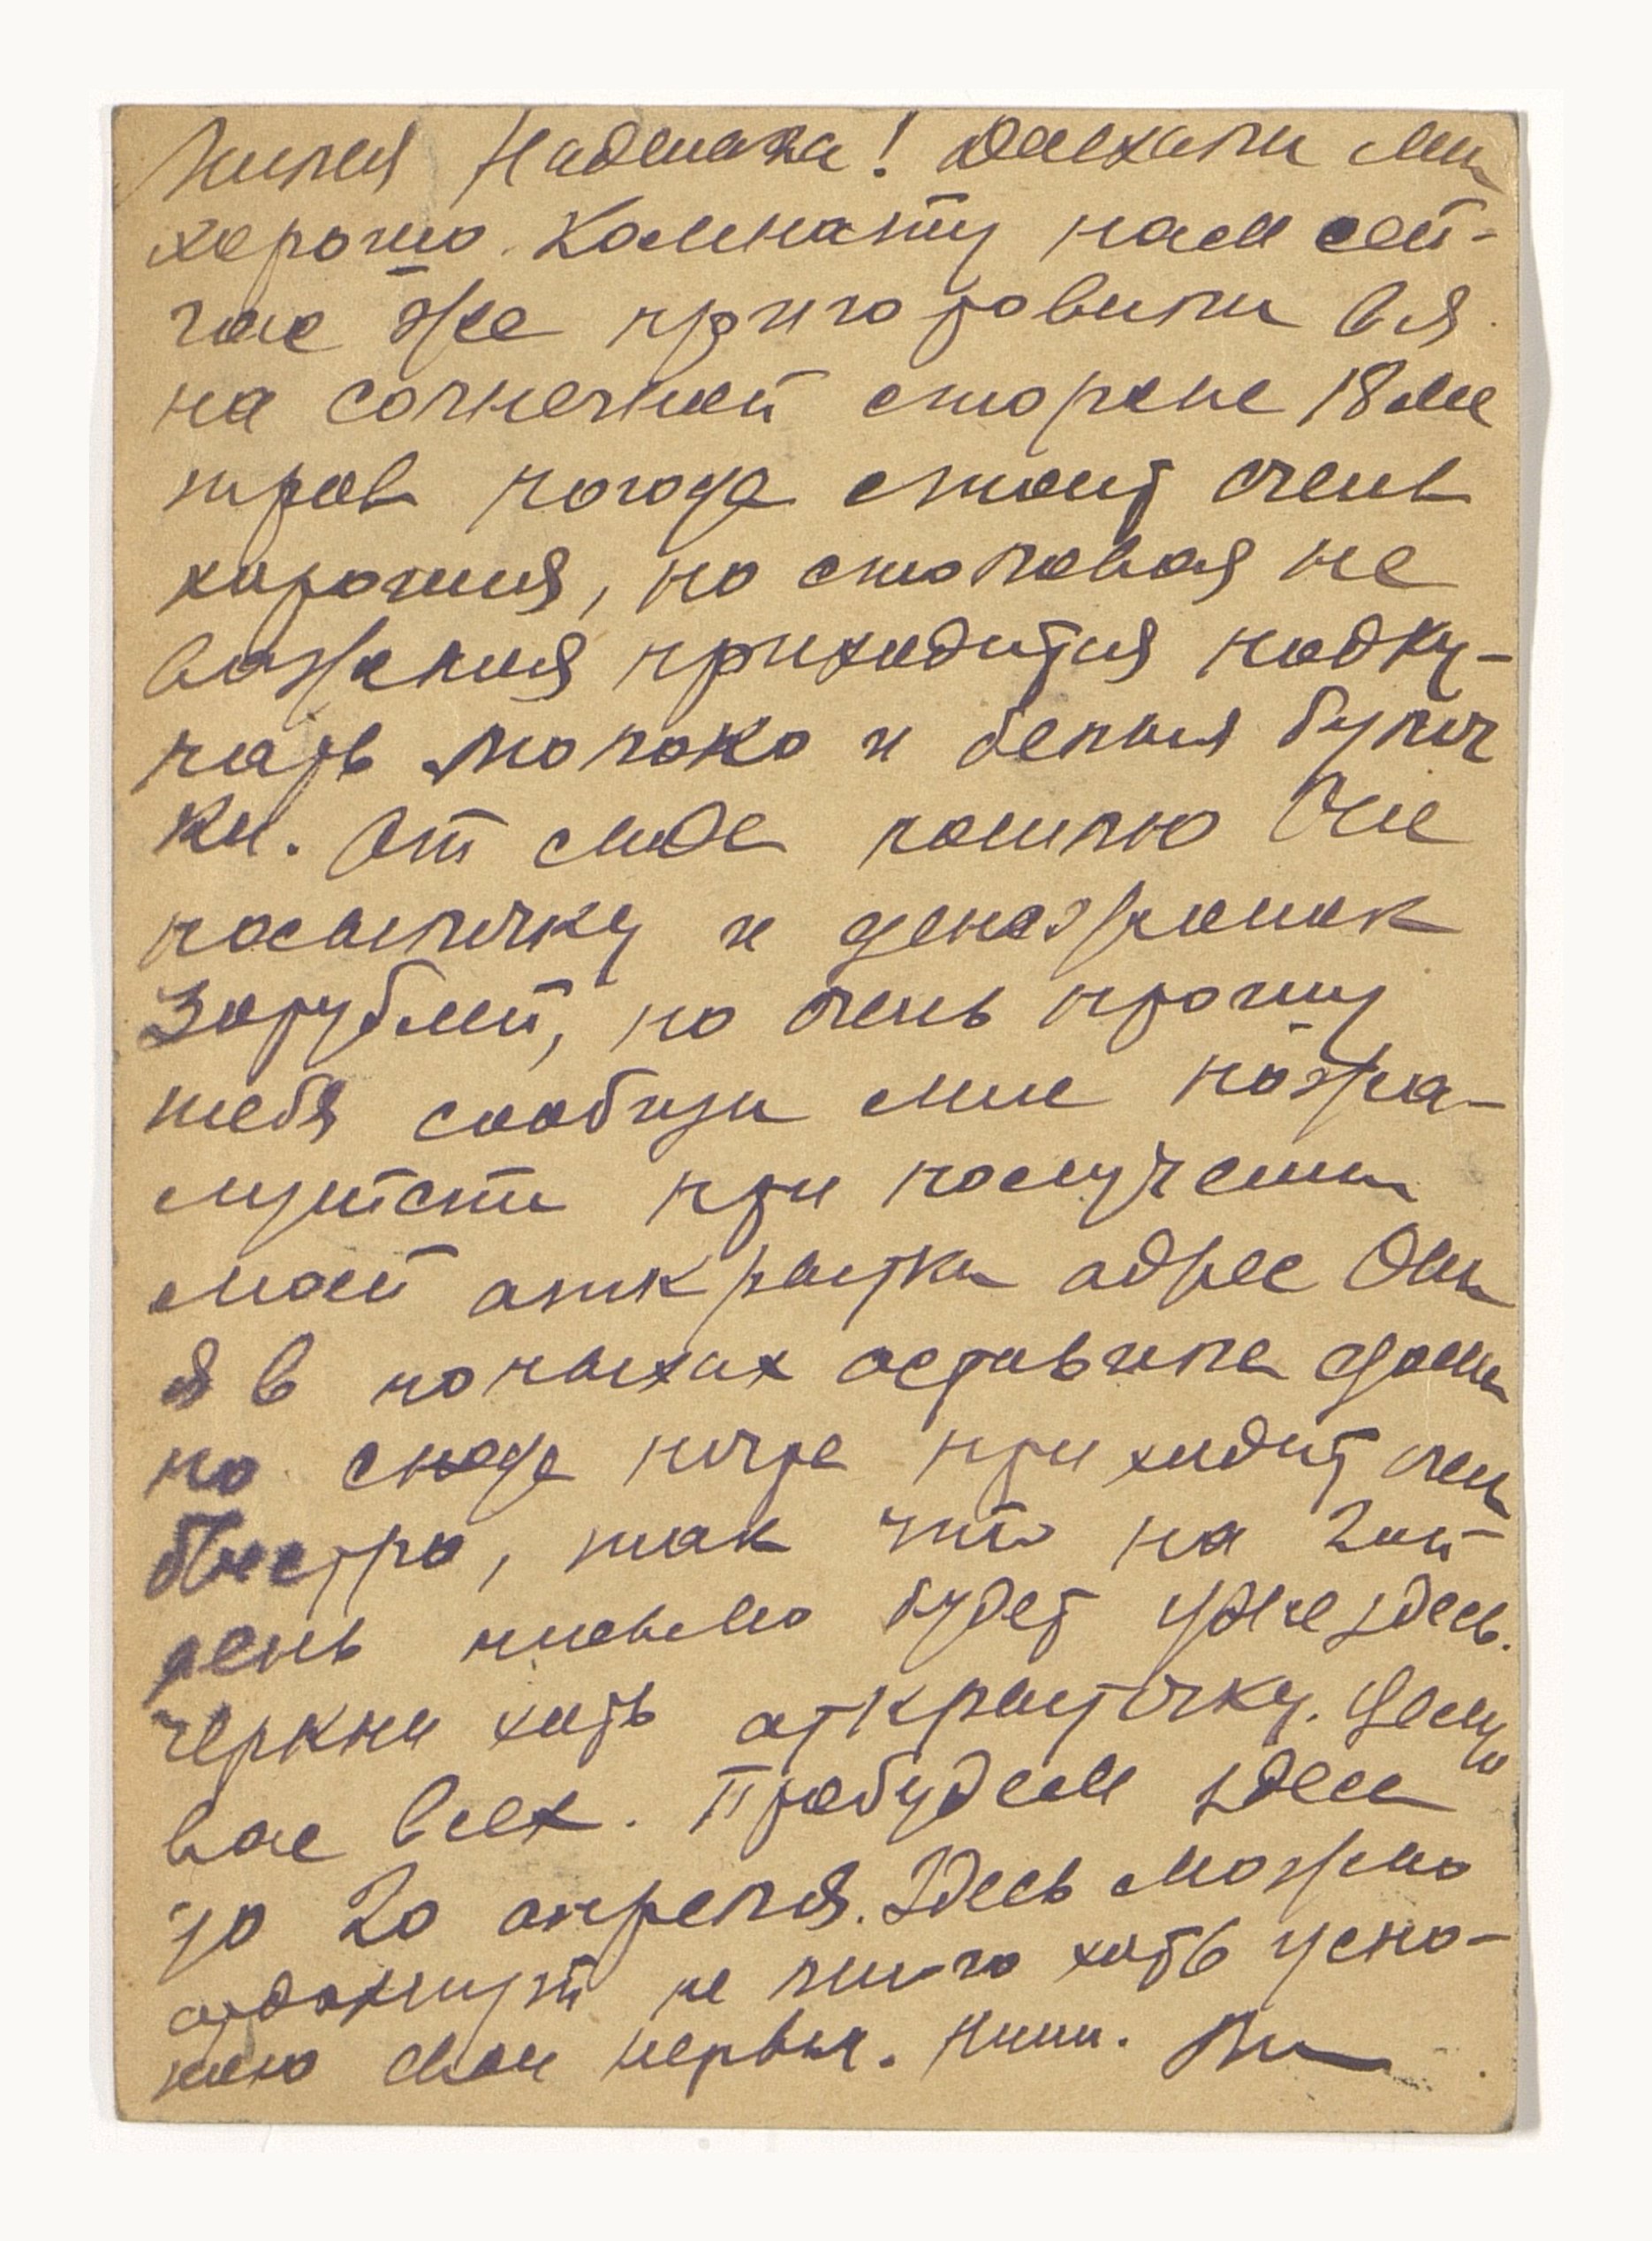 Милая Надюшка! Доехали мы
хорошо. Комнату нам сей-
час же приготовили вся
на солнечной стороне 18 ме
тров погода стоит очень
хорошая, но столовая не
важная приходится подку-
пать молоко и белыя булоч
ки. От сюда пошлю Оле
посылочку и денег
30 рублей, но очень прошу
тебя сообщи мне пожа-
луйста при получении
моей открытки адрес Оли
я в попыхах оставила дома
но сюда почта приходит очень
быстро, так что на 2ой
день письмо будет уже здесь.
Черкни хоть открыточку. Целую
вас всех. Пробудем здесь
до 20 апреля. Здесь можно
отдохнуть не плохо хоть успо-
кою свои нервы. Пиши.